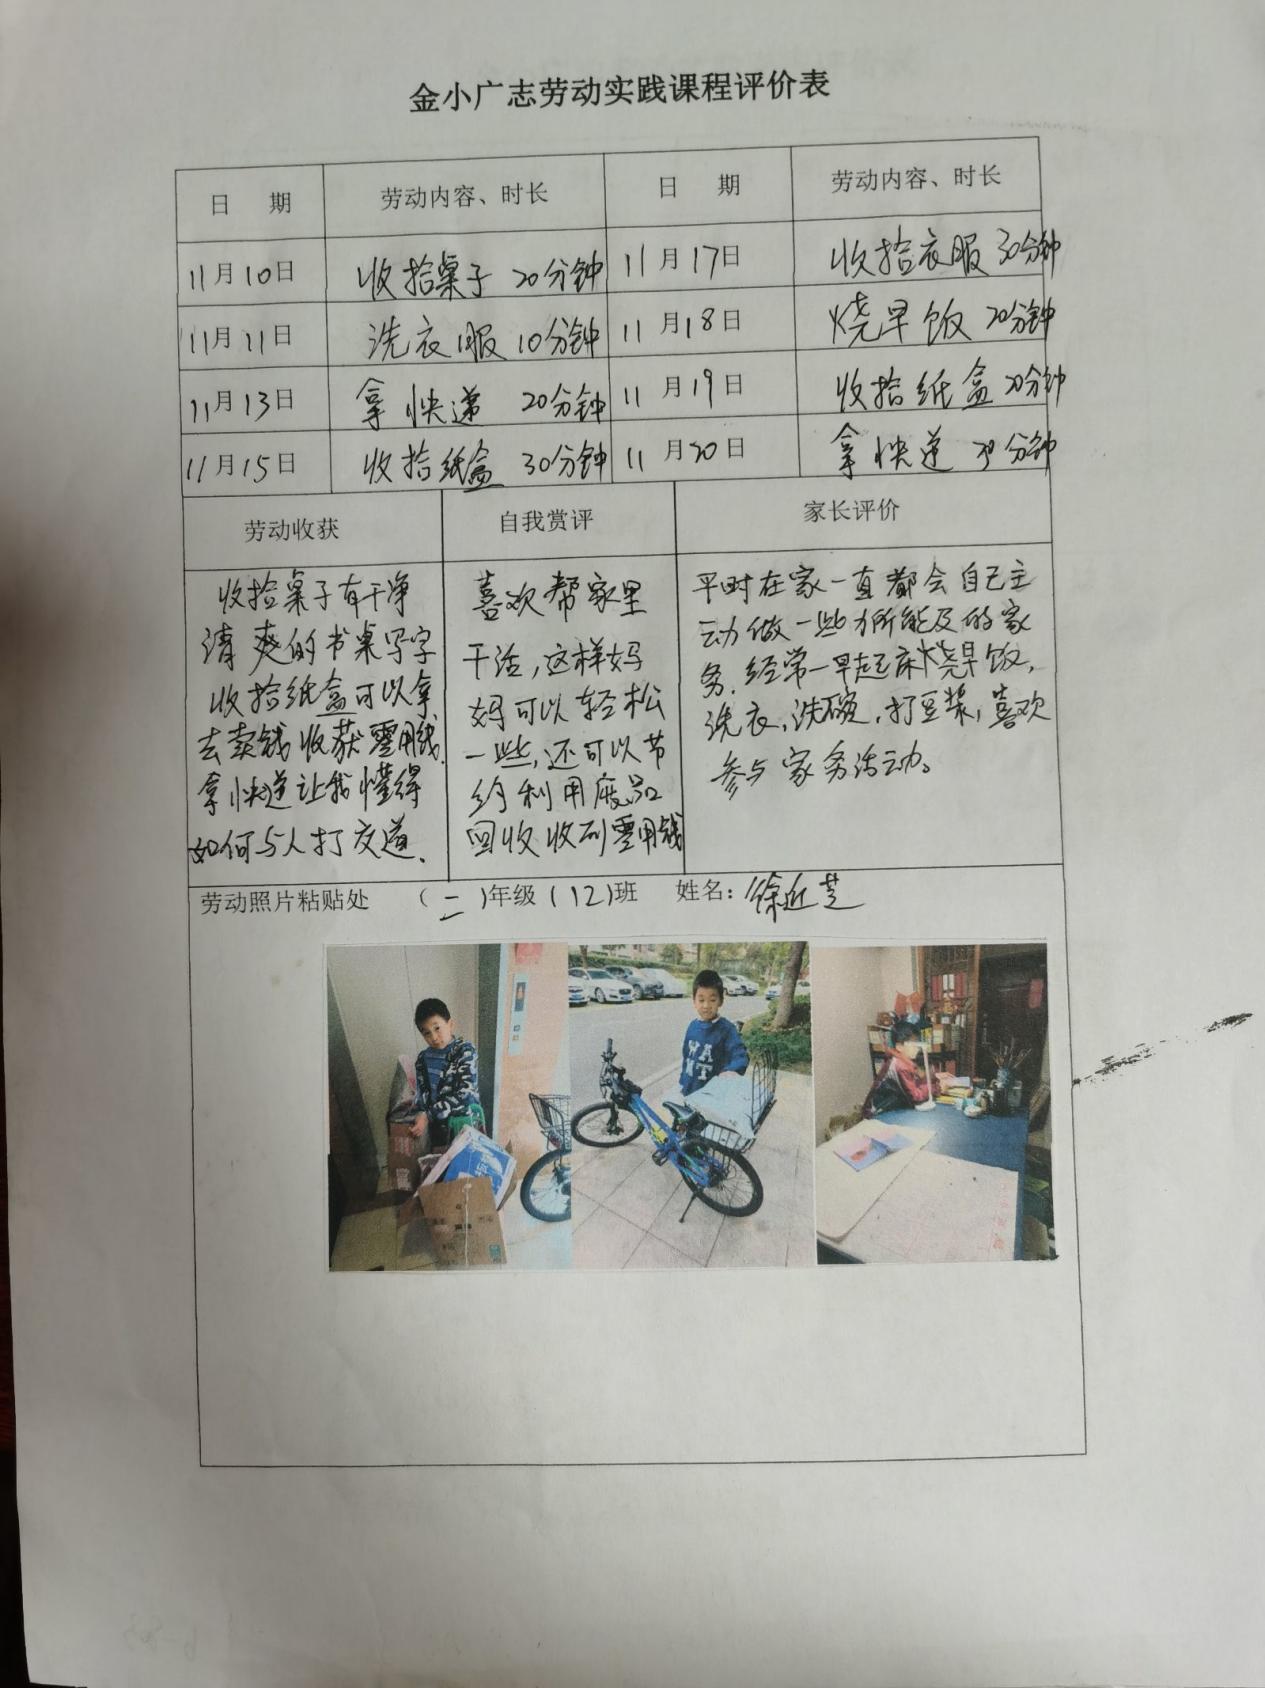 金小广志劳动实践课程评价表
日 期 劳动内容、时长 日 期 劳动内容、时长
11月10日 收拾桌子 20分钟 11月17日 收拾衣服 30分钟
11月11日 洗衣服 10分钟 11月18日 烧早饭 20分钟
11月13日 拿快递 20分钟 11月19日 收拾纸盒 20分钟
11月15日 收拾纸盒 30分钟 11月20日 拿快递 分钟
劳动收获
收拾桌子有干净
清爽的书桌写字
收拾纸盒可以拿
去卖钱收获零用钱.
拿快递让我懂得
如何与人打交道.
自我赏评
喜欢帮家里
干活,这样妈
妈可以轻松
一些,还可以节
约利用废品
回收收到零用钱
家长评价
平时在家一直都会自己主
动做一些力所能及的家
务.经常一早起床烧早饭,
洗衣,洗碗,打豆浆,喜欢
参与家务活动。
劳动照片粘贴处 (二)年级(12)班 姓名:徐近芝
WA
NT